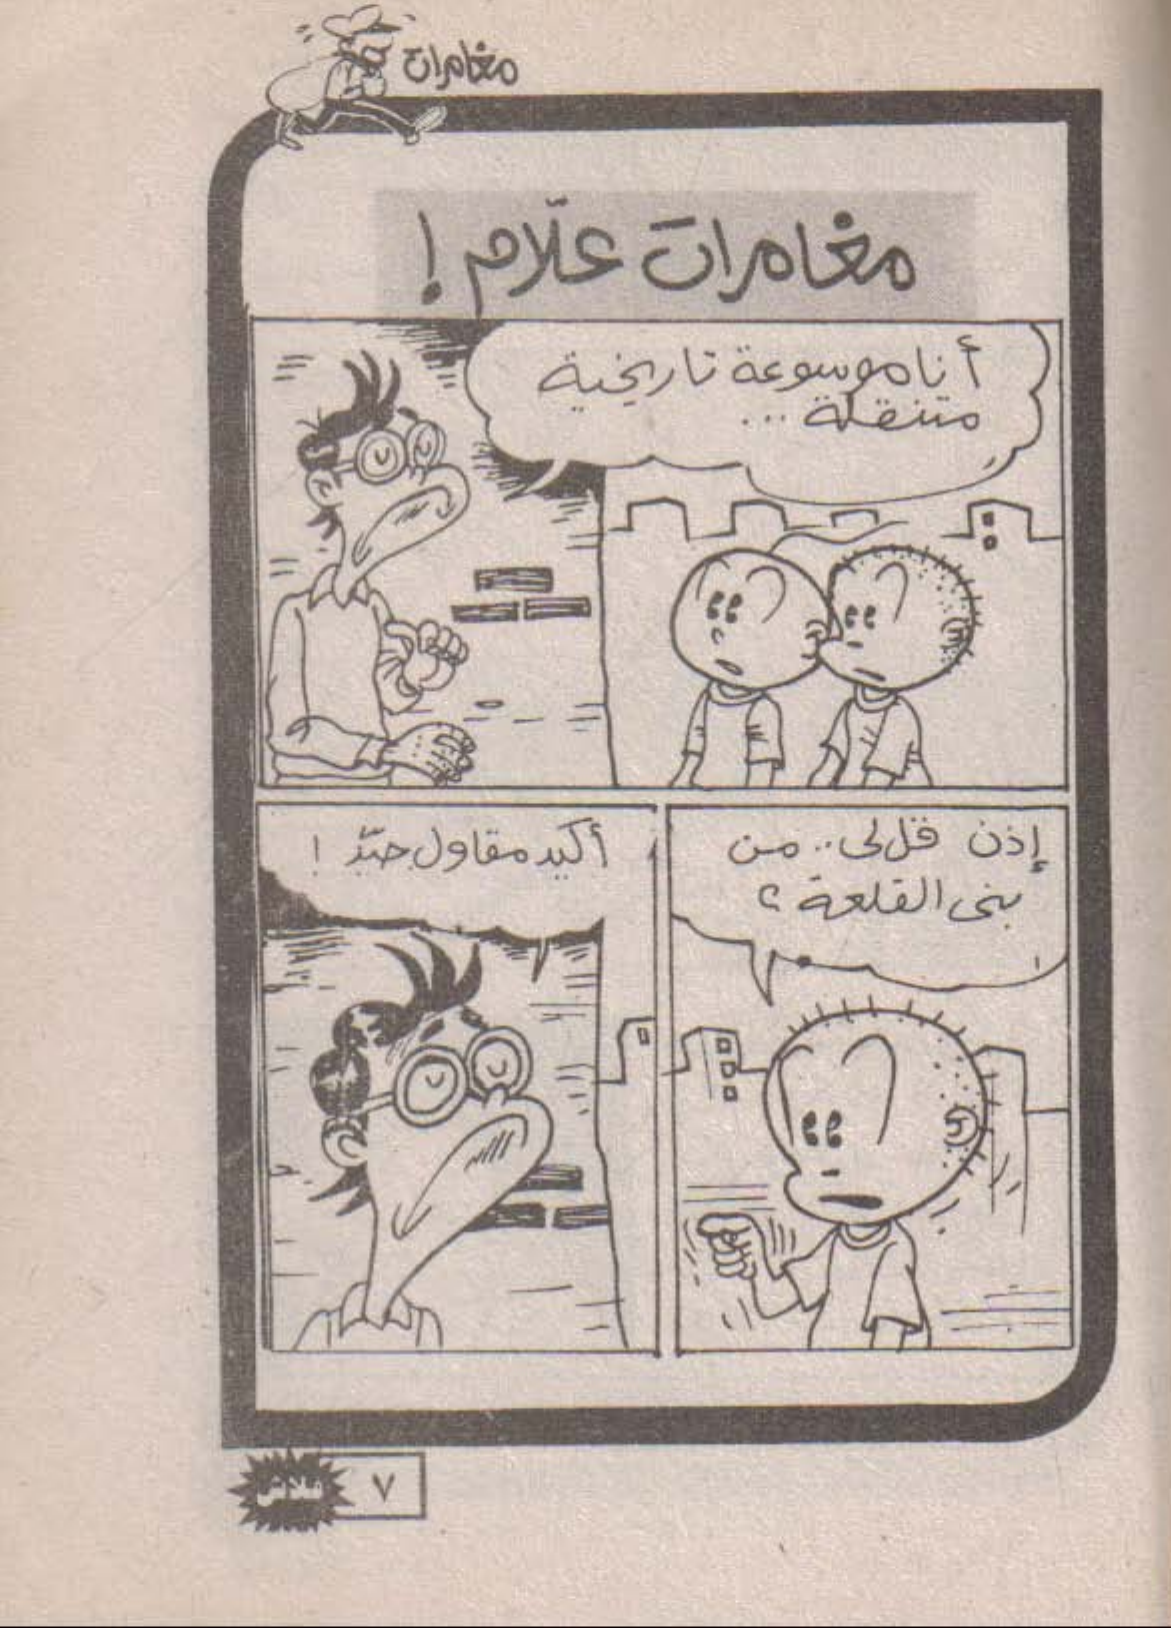 مغامرات
مغامرات علّام !
أنا موسوعة تاريخية
متنقلة ...
إذن قل لى .. من
بنى القلعة ؟
أكيد مقاول جيّد !
٧
فلاش